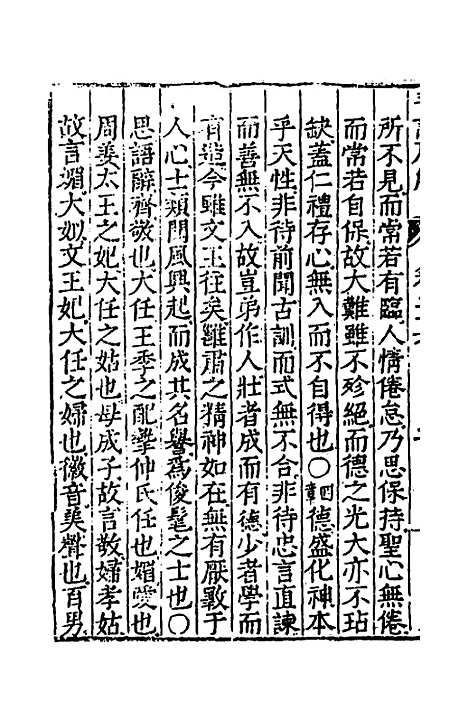 所不見而常若有臨人情倦怠乃思保持聖心無倦
而常若自保故大難雖不殄絕而德之光大亦不玷
缺蓋仁禮存心無入而不自得也〇四章德盛化神本
乎天性非待前聞古訓而式無不合非待忠言直諫
而善無不入故豈弟作人壯者成而有德少者學而
有造今雖文王往矣雝肅之精神如在無有厭斁于
人心士類聞風興起而成其名譽為俊髦之士也〇
思語辭齊敬也大任王季之配摯仲氏任也媚愛也
周姜太王之妃大任之姑也母成子故言敬婦孝姑
故言媚大姒文王妃大任之婦也徽音美聲也百男